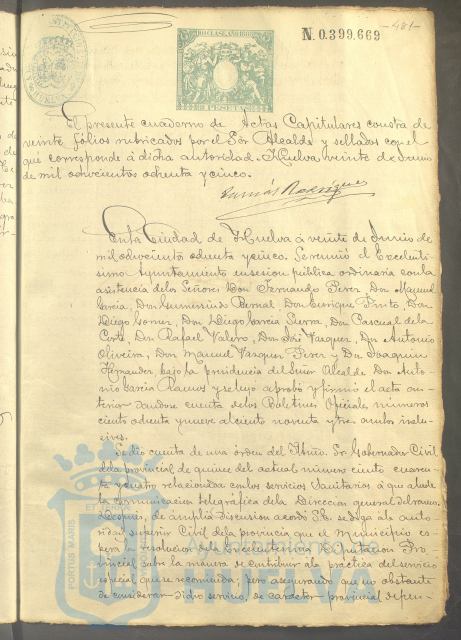 -481-
N. 0.399.669
PESETA
El presente cuaderno de Actas Capitulares consta de
veinte fólios rubricados por el Sor Alcalde y sellados con el
que corresponde á dicha autoridad. Huelva veinte de Junio
de mil ochocientos ochenta y cinco.
En la Ciudad de Huelva á veinte de Junio de
mil ochociento ochenta y cinco. Se reunió el Excelentí-
simo Ayuntamiento en sesion pública ordinaria con la
asistencia de los Señores Don Fernando Perez Don Manuel
Garcia, Don Gumersindo Bernal Don Enrique Pinto, Don
Diego Gomez, Don Diego Garcia Sierra, Don Pascual de la
Corte, Don Rafael Valero, Don José Vazquez, Don Antonio
Oliveira, Don Manuel Vazquez Perez y Don Joaquin
Fernandez, bajo la presidencia del Señor Alcalde Don Anto-
nio Garcia Ramos y se leyó aprobó y firmó el acta an-
terior dandose cuenta de los Boletines Oficiales números
ciento ochenta y nueve al ciento noventa y tres ambos inclu-
sives.
Se dio cuenta de una órden del Iltmo. Sr. Gobernador Civil
de la provincia de quince del actual número ciento cuaren-
ta y cuatro relacionada con los servicios Sanitarios á que alude
la comunicacion telegráfica de la Direccion general del ramo.
Despues de ámplia discusion acordó S.E. se diga á la auto-
ridad superior Civil de la provincia que el municipio es-
pera la resolucion de la Excelentisima Diputacion Pro-
vincial sobre la manera de contribuir á la práctica del servicio
especial que se recomienda; pero asegurando que no obstante
de considerar dicho servicio, de carácter provincial depen-
PORTUS MARIS
ET TERRE
Ayuntamiento de
HUELVA